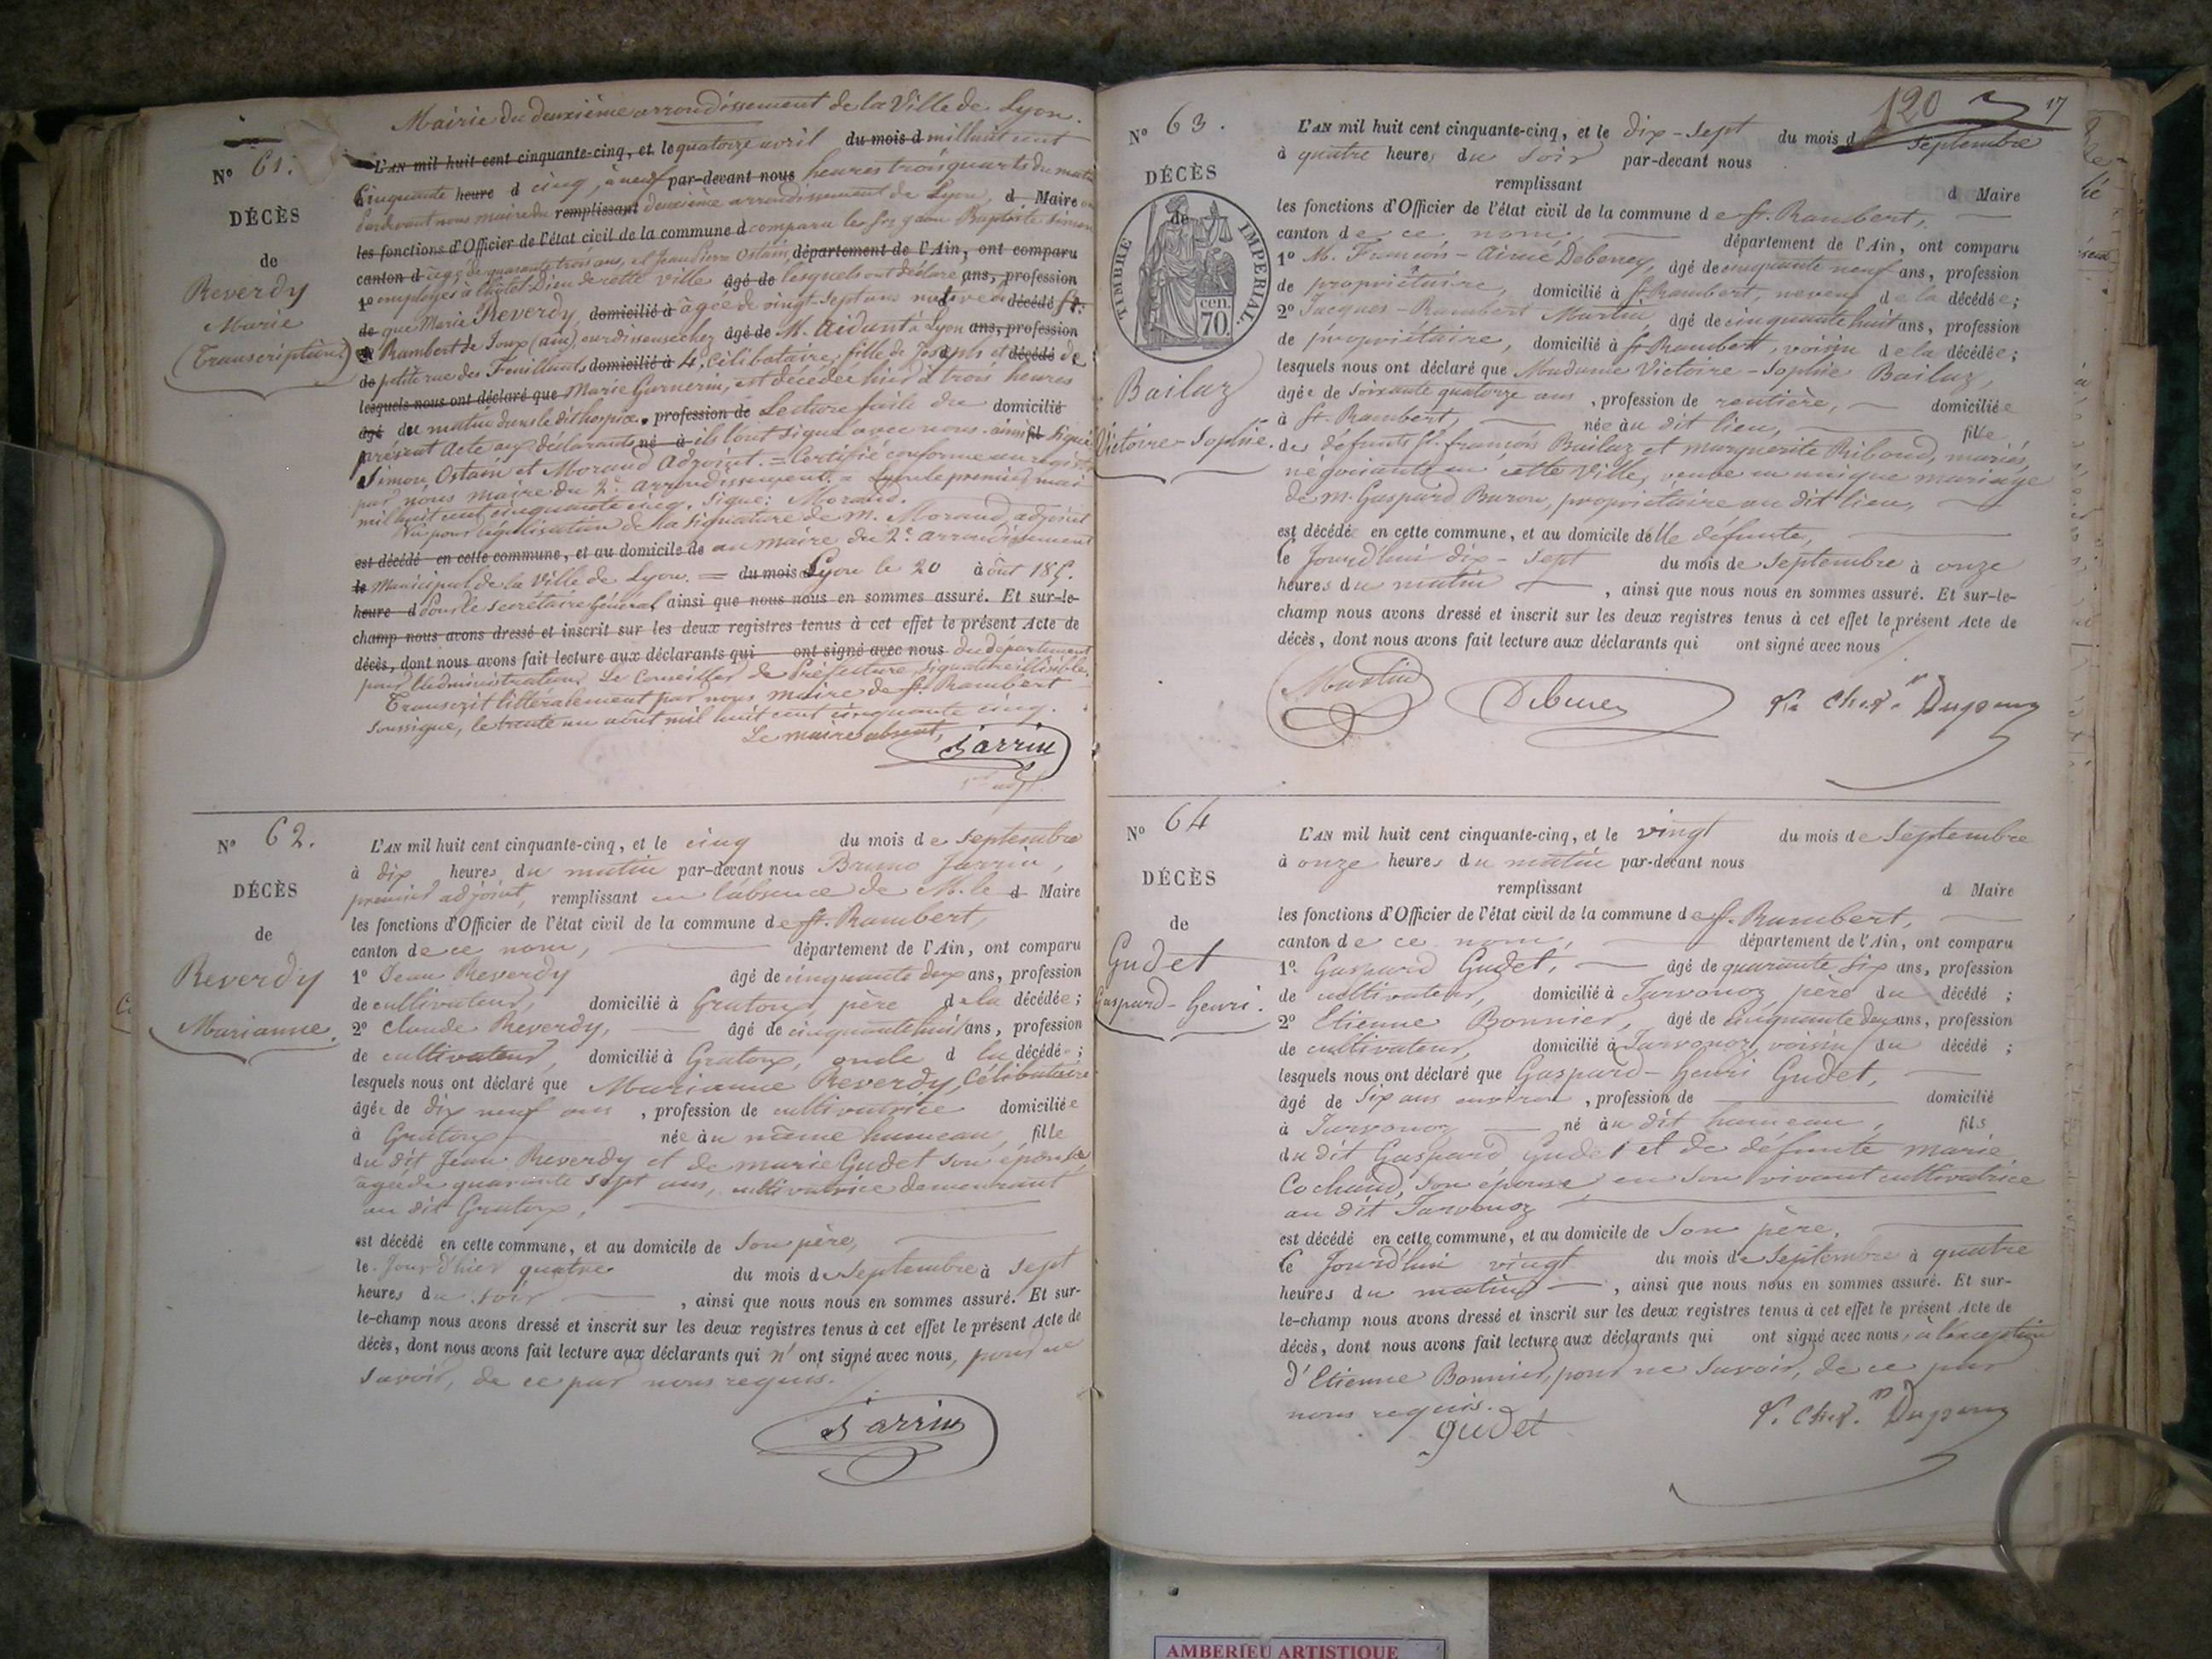 Mairie du deuxième arrondissement de la Ville de Lyon.
N° 61.
DÉCÈS
de
Reverdy
Marie
(Transcription)
L'AN mil huit cent cinquante-cinq, et le quatorze avril du mois d mil huit cent
Cinquante heure d cinq, à neuf par-devant nous heures trois quarts du matin
Pardevant nous maire du remplissant deuxième arrondissement de Lyon, d Maire
les fonctions d'Officier de l'état civil de la commune d comparu les Srs Baptiste Simon
canton d âgé de quarante trois ans, et Jean Pierre Ostain département de l'Ain, ont comparu
1° employés à l'hôtel Dieu de cette ville âgé de lesquels ont déclaré ans, profession
de que Marie Reverdy, domicilié à âgée de vingt-sept ans native décédé St.
Rambert de Joux (ain) ourdisseuse chez âgé de M. Aidant à Lyon ans, profession
de petite rue des Feuillants domicilié à 4, Célibataire, fille de Joseph et décédé de
lesquels nous ont déclaré que Marie Garnerin, est décédée hier à trois heures
âgé du matin dans le dit hospice. profession de Lecture faite du domicilié
présent acte aux déclarants né à ils l'ont signé avec nous. ainsi fil signé
Simon, Ostain et Morand adjoint. = Certifié conforme au registre
par nous maire du 2e arrondissement. = Lyon le premier mai
mil huit cent cinquante cinq. Signé: Morand.
Vu pour légalisation de la signature de M. Morand adjoint
est décédé en cette commune, et au domicile de au maire du 2e arrondissement
le Municipal de la Ville de Lyon. = du mois Lyon le 20 août 185.
heure d Pour le secrétaire Général ainsi que nous nous en sommes assuré. Et sur-le-
champ nous avons dressé et inscrit sur les deux registres tenus à cet effet le présent Acte de
décès, dont nous avons fait lecture aux déclarants qui ont signé avec nous du département
pour l'administration, Le Conseiller de Préfecture, signature illisible.
Transcrit littéralement par nous maire de St. Rambert
soussigné, le trente un août mil huit cent cinquante cinq.
Le maire absent,
Jarrin
N° 62.
DÉCÈS
de
Reverdy
Marianne.
L'AN mil huit cent cinquante-cinq, et le cinq du mois de septembre
à dix heures du matin par-devant nous Bruno Jarrin,
premier adjoint, remplissant en l'absence de M. le d Maire
les fonctions d'Officier de l'état civil de la commune de St. Rambert,
canton de ce nom, département de l'Ain, ont comparu
1° Jean Reverdy âgé de cinquante deux ans, profession
de cultivateur, domicilié à Gratoux, père de la décédée;
2° Claude Reverdy, âgé de cinquante huit ans, profession
de cultivateur, domicilié à Gratoux, oncle d la décédée;
lesquels nous ont déclaré que Marianne Reverdy, Célibataire
âgée de dix neuf ans, profession de cultivatrice domiciliée
à Gratoux née au même hameau, fille
du dit Jean Reverdy et de marie Gudet son épouse
âgée de quarante sept ans, cultivatrice demeurant
au dit Gratoux,
est décédé en cette commune, et au domicile de son père,
le jour d'hier quatre du mois de septembre à sept
heures du soir, ainsi que nous nous en sommes assuré. Et sur-
le-champ nous avons dressé et inscrit sur les deux registres tenus à cet effet le présent Acte de
décès, dont nous avons fait lecture aux déclarants qui n'ont signé avec nous, pour ne
savoir, de ce par nous requis.
Jarrin
120
17
N° 63.
DÉCÈS
de
TIMBRE IMPERIAL.
cen.
70.
Bailaz
Victoire-Sophie.
L'AN mil huit cent cinquante-cinq, et le dix-sept du mois d septembre
à quatre heures du soir par-devant nous
remplissant d Maire
les fonctions d'Officier de l'état civil de la commune de St. Rambert,
canton de ce nom, département de l'Ain, ont comparu
1° M. François-Aimé Debeney, âgé de cinquante neuf ans, profession
de propriétaire, domicilié à St Rambert, neveu de la décédée;
2° Jacques-Rambert Martin, âgé de cinquante huit ans, profession
de propriétaire, domicilié à St Rambert, voisin de la décédée;
lesquels nous ont déclaré que Madame Victoire-Sophie Bailaz,
âgée de soixante quatorze ans, profession de rentière, domiciliée
à St. Rambert, née au dit lieu, fille
des défunts Sr. françois Bailaz et marguerite Riboud, mariés,
négociants en cette ville, veuve en unique mariage
de m. Gaspard Buron, propriétaire au dit lieu,
est décédé en cette commune, et au domicile de lle défunte,
le jourd'hui dix-sept du mois de septembre à onze
heures du matin, ainsi que nous nous en sommes assuré. Et sur-le-
champ nous avons dressé et inscrit sur les deux registres tenus à cet effet le présent Acte de
décès, dont nous avons fait lecture aux déclarants qui ont signé avec nous
Martin Debeney
N° 64
DÉCÈS
de
Gudet
Gaspard-henri.
L'AN mil huit cent cinquante-cinq, et le vingt du mois de septembre
à onze heures du matin par-devant nous
remplissant d Maire
les fonctions d'Officier de l'état civil de la commune de St. Rambert,
canton de ce nom, département de l'Ain, ont comparu
1° Gaspard Gudet, âgé de quarante six ans, profession
de cultivateur, domicilié à Jarvonoz, père du décédé;
2° Etienne Bonnier, âgé de cinquante deux ans, profession
de cultivateur, domicilié à Jarvonoz, voisin du décédé;
lesquels nous ont déclaré que Gaspard-henri Gudet,
âgé de six ans environ, profession de domicilié
à Jarvonoz né au dit hameau, fils
du dit Gaspard Gudet et de défunte marie
Cochaud, son épouse, en son vivant cultivatrice
au dit Jarvonoz
est décédé en cette commune, et au domicile de son père,
le jourd'hui vingt du mois de septembre à quatre
heures du matin, ainsi que nous nous en sommes assuré. Et sur-
le-champ nous avons dressé et inscrit sur les deux registres tenus à cet effet le présent Acte de
décès, dont nous avons fait lecture aux déclarants qui ont signé avec nous, à l'exception
d'Etienne Bonnier, pour ne savoir, de ce par
nous requis.
gudet
AMBERIEU ARTISTIQUE